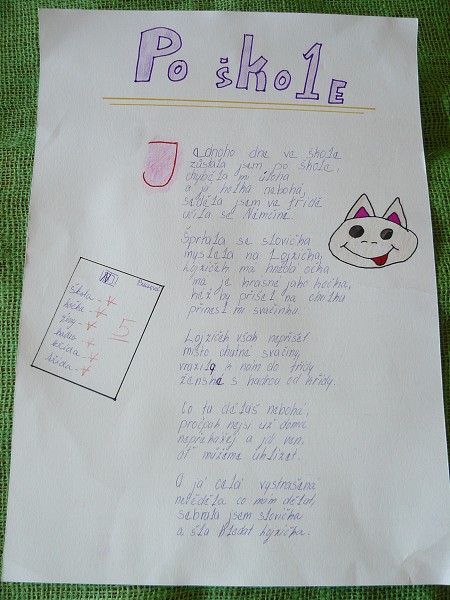 Po škole
Jednoho dne ve škole
zůstala jsem po škole,
chyběla mi úloha
a já holka nebohá,
seděla jsem ve třídě
učila se Němčině.
Šprtala se slovíčka
myslela na Lojzíčka,
Lojzíček má hnědá očka
má je krásné jako kočka,
než by přišel na chvilku
přinesl mi svačinku.
Lojzíček však nepřišel
místo chutné svačiny,
vrazila k nám do třídy
ženská s hadrou od křídy.
Co tu děláš nebohá,
pročpak nejsi už doma
nepřekážej a jdi ven,
ať můžeme uklízet.
A já celá vystrašená
nevěděla co mám dělat,
sebrala jsem slovíčka
a šla hledat Lojzíčka.
NJ
škola -
křída
křída -
5